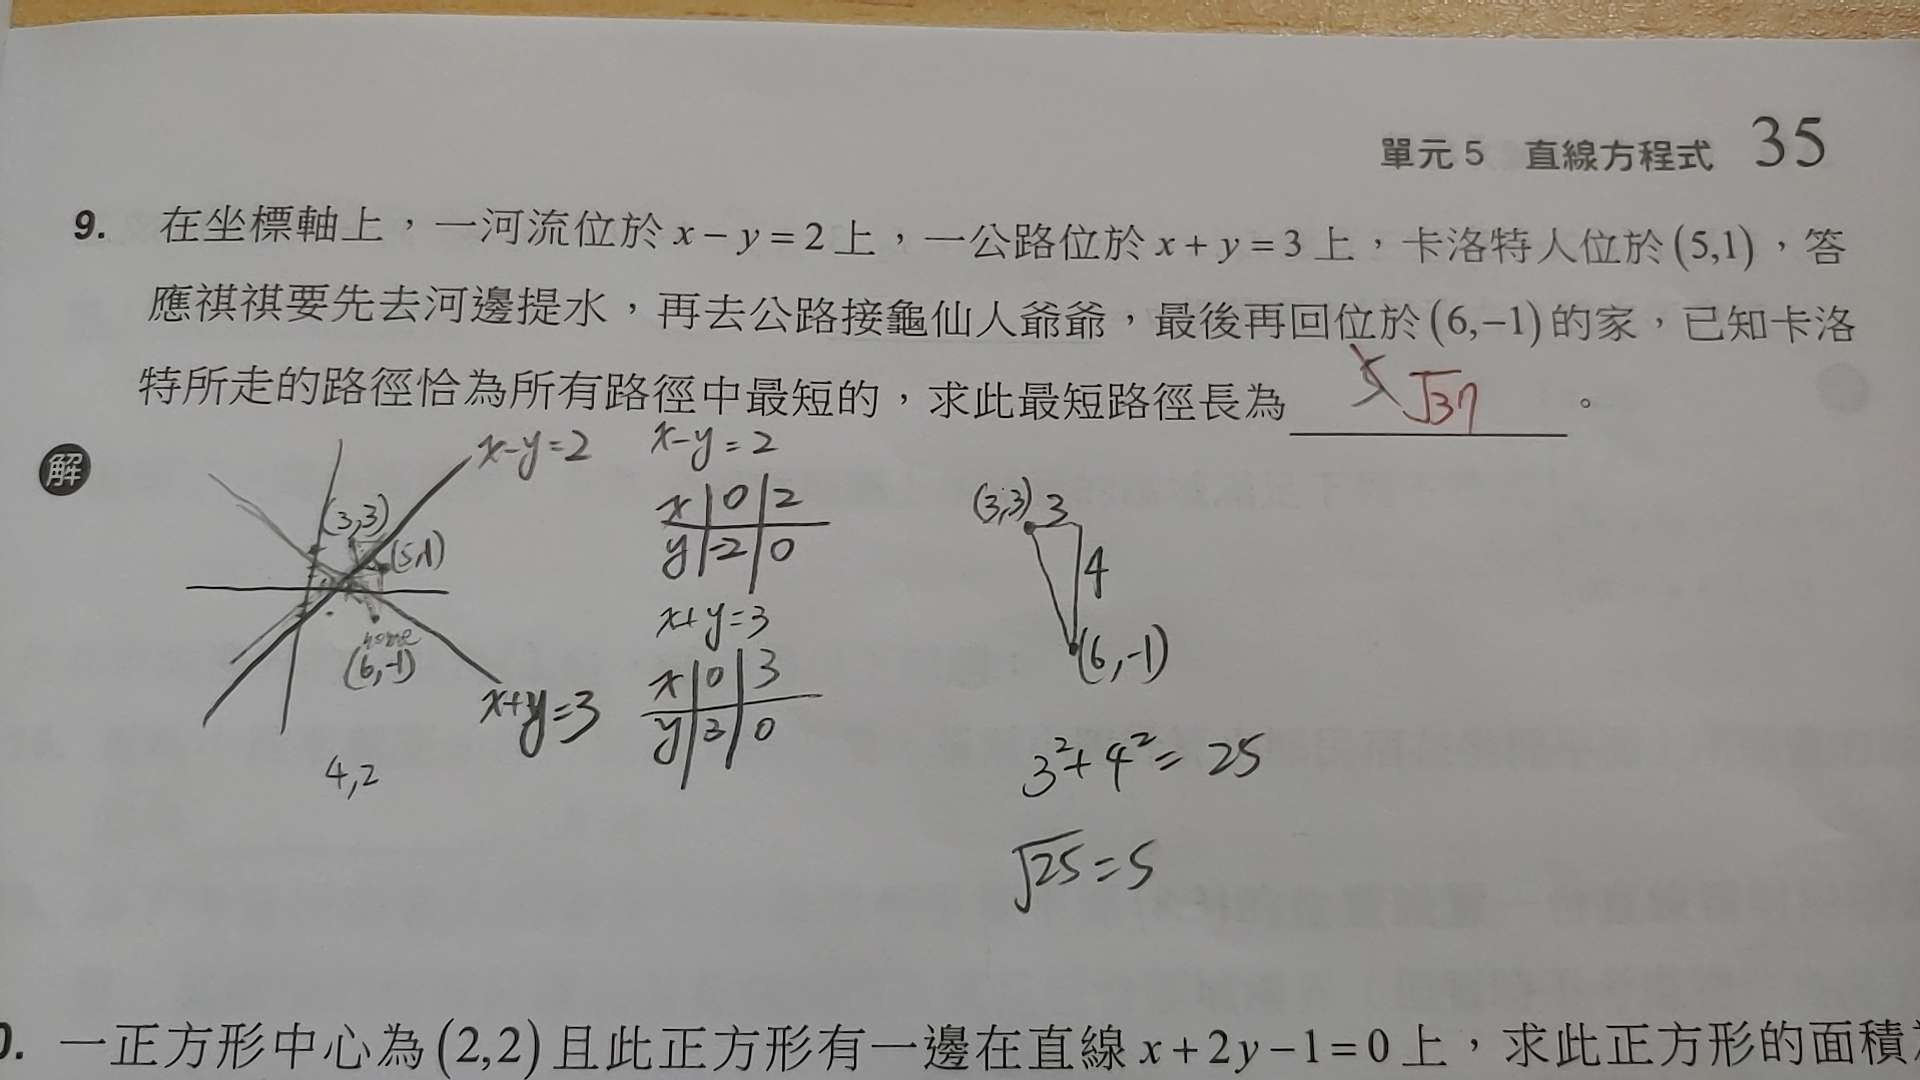 單元 5 直線方程式 35
9. 在坐標軸上，一河流位於 x－y＝2 上，一公路位於 x＋y＝3 上，卡洛特人位於 (5,1)，答
應祺祺要先去河邊提水，再去公路接龜仙人爺爺，最後再回位於 (6,−1) 的家，已知卡洛
特所走的路徑恰為所有路徑中最短的，求此最短路徑長為 5 √37 。
解
x-y=2
(3,3)
(5,1)
home
(6,-1)
x+y=3
4,2
x-y=2
x 0 2
y -2 0
x+y=3
x 0 3
y 3 0
(3,3) 3
4
(6,-1)
3²+4²=25
√25=5
0. 一正方形中心為 (2,2) 且此正方形有一邊在直線 x＋2y－1＝0 上，求此正方形的面積